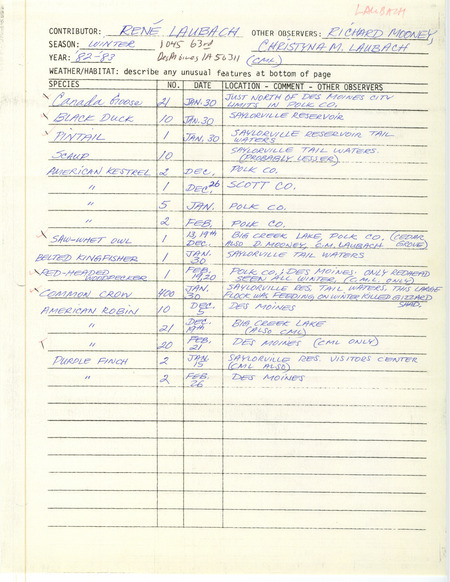 LAUBACH
CONTRIBUTOR: RENÉ LAUBACH OTHER OBSERVERS: RICHARD MOONEY,
SEASON: WINTER 1045 63rd CHRISTYNA M. LAUBACH
YEAR: '82-'83 Des Moines IA 50311 (CML)
WEATHER/HABITAT: describe any unusual features at bottom of page
SPECIES NO. DATE LOCATION - COMMENT - OTHER OBSERVERS
Canada Goose 21 JAN. 30 JUST NORTH OF DES MOINES CITY
LIMITS IN POLK CO.
BLACK DUCK 10 JAN. 30 SAYLORVILLE RESERVOIR
PINTAIL 1 JAN. 30 SAYLORVILLE RESERVOIR TAIL
WATERS
SCAUP 10 SAYLORVILLE TAIL WATERS.
(PROBABLY LESSER)
AMERICAN KESTREL 2 DEC. POLK CO.
" 1 DEC. 26 SCOTT CO.
" 5 JAN. POLK CO.
" 2 FEB. POLK CO.
SAW-WHET OWL 1 13, 19th DEC. BIG CREEK LAKE, POLK CO. (CEDAR
ALSO D. MOONEY, C.M. LAUBACH GROVE)
BELTED KINGFISHER 1 JAN. 30 SAYLORVILLE TAIL WATERS
RED-HEADED WOODPECKER 1 FEB. 19,20 POLK CO., DES MOINES. ONLY REDHEAD
SEEN ALL WINTER, (C.M.L. ONLY)
COMMON CROW 400 JAN. 30 SAYLORVILLE RES. TAIL WATERS. THIS LARGE
FLOCK WAS FEEDING ON WINTER KILLED GIZZARD
SHAD.
AMERICAN ROBIN 10 DEC. 5 DES MOINES
" 21 DEC. 19th BIG CREEK LAKE
(ALSO CML)
" 20 FEB. 21 DES MOINES (CML ONLY)
PURPLE FINCH 2 JAN. 15 SAYLORVILLE RES. VISITORS CENTER
(CML ALSO)
" 2 FEB. 26 DES MOINES